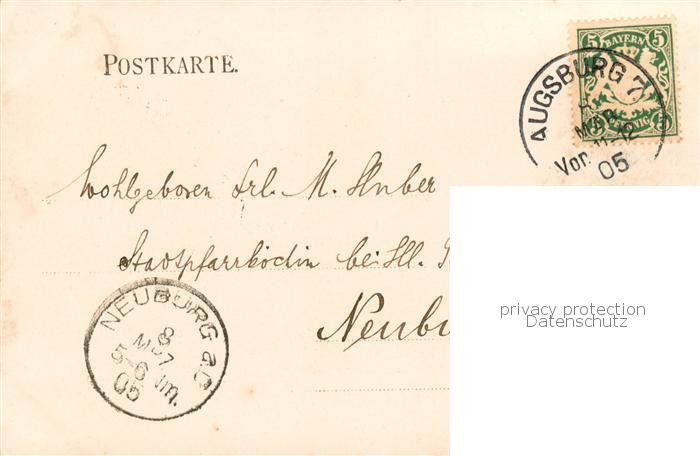 POSTKARTE.
5 BAYERN 5
PFENNIG
AUGSBURG 7.
8
Vor. 11-12
05
Wohlgeboren Frl. M. Huber
Stadtpfarrköchin bei Hl.
Neubu
privacy protection
Datenschutz
NEUBURG a.D
8
MAI
5-6 Nm.
05